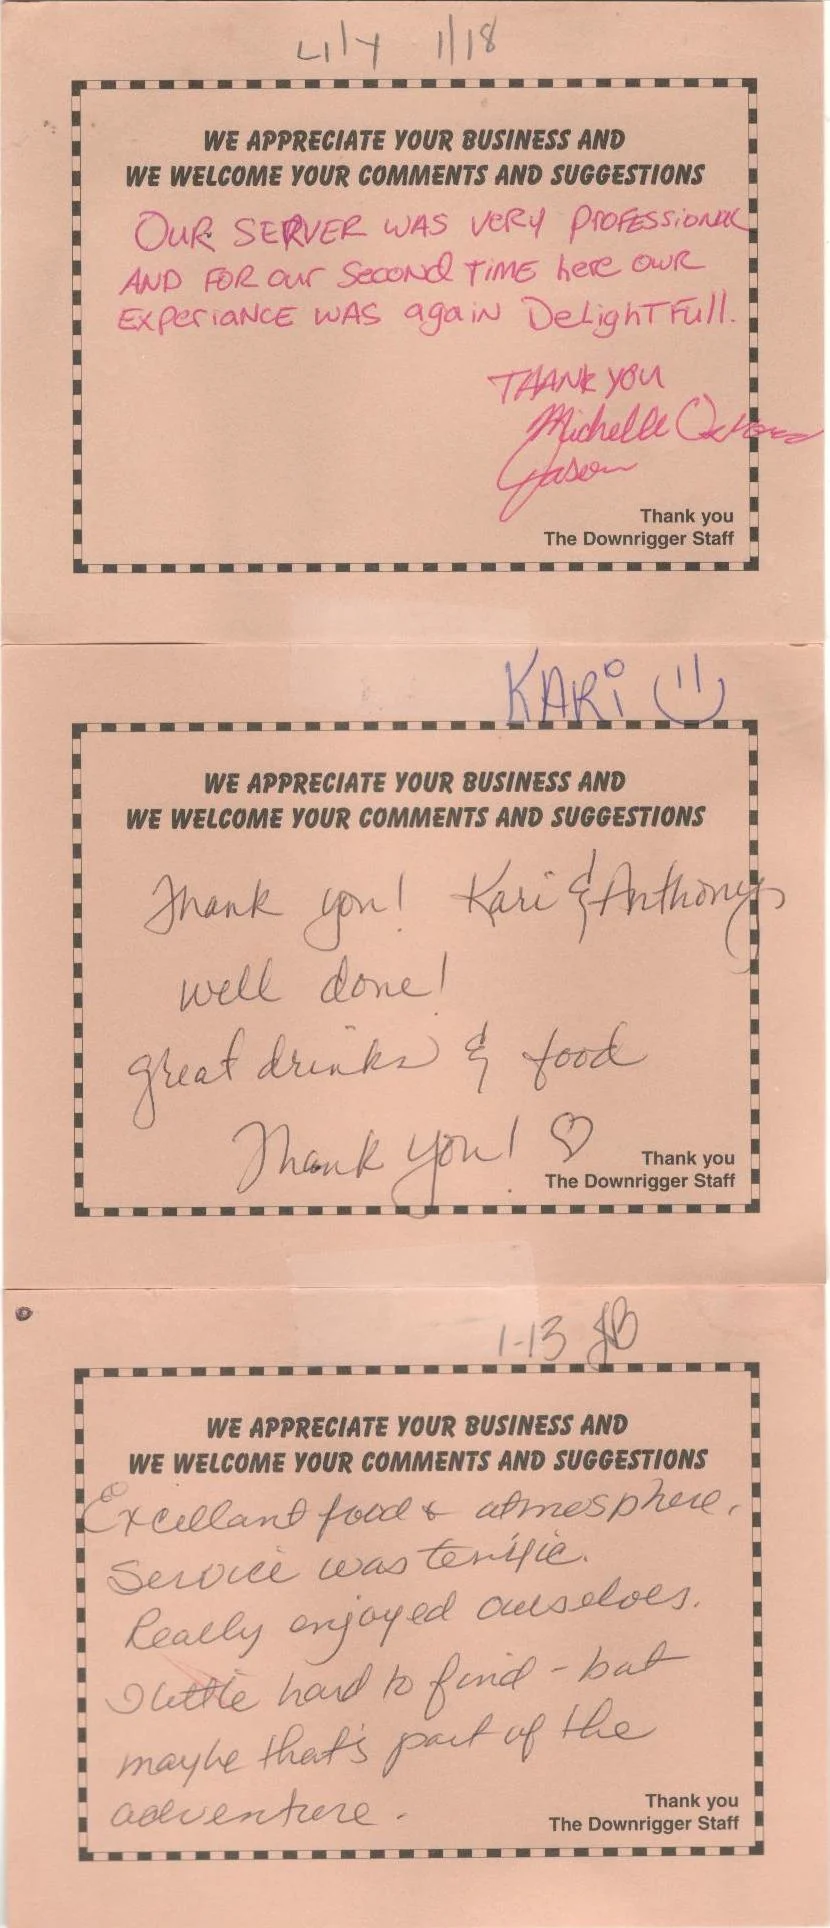 Lily 1/18
WE APPRECIATE YOUR BUSINESS AND
WE WELCOME YOUR COMMENTS AND SUGGESTIONS
OUR SERVER WAS VERY PROFESSIONAL
AND FOR our Second TIME here OUR
EXPERIANCE WAS again DeLighTFull.
THANK YOU
Michelle
Jason
Thank you
The Downrigger Staff
KARi
WE APPRECIATE YOUR BUSINESS AND
WE WELCOME YOUR COMMENTS AND SUGGESTIONS
Thank you! Kari & Anthony
well done!
great drinks & food
Thank you!
Thank you
The Downrigger Staff
1-13 JB
WE APPRECIATE YOUR BUSINESS AND
WE WELCOME YOUR COMMENTS AND SUGGESTIONS
Excellant food & atmosphere.
Service was terrific.
Really enjoyed ourselves.
little hard to find - but
maybe that's part of the
adventure.
Thank you
The Downrigger Staff